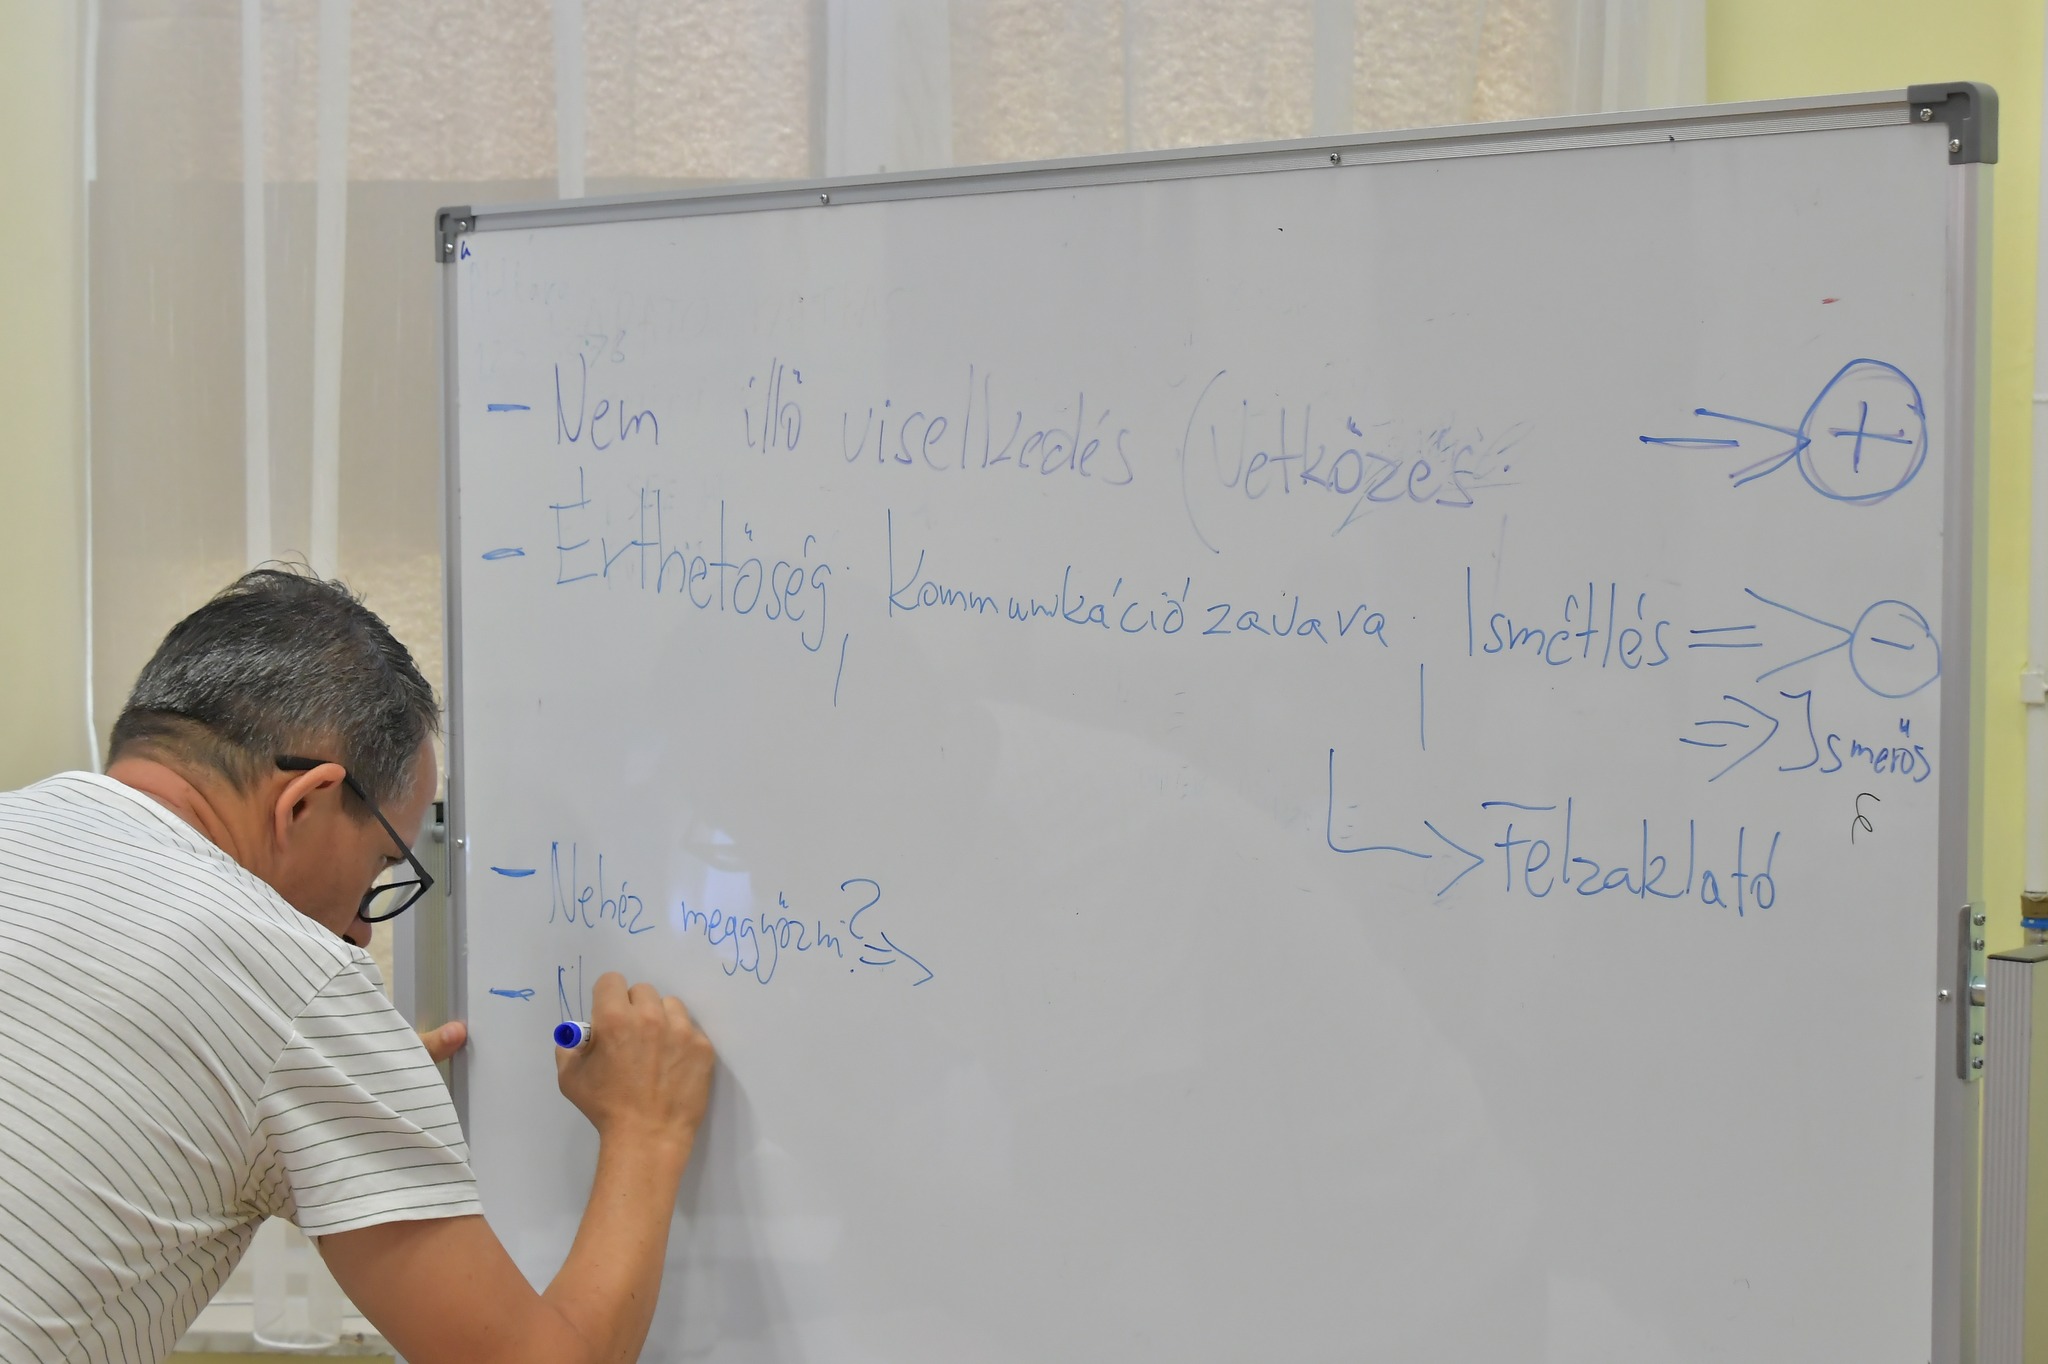 - Nem illő viselkedés (Vetkőzés => +
- Érthetőség, Kommunikáció zavara, Ismétlés => -
=> Ismerős
-> Felzaklató
- Nehéz meggyőzni? =>
- N